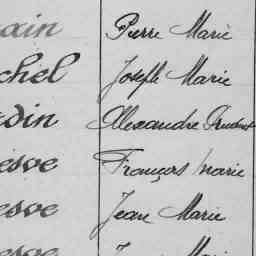 ain Pierre Marie
chel Joseph Marie
din Alexandre Prudent
esve François Marie
esve Jean Marie